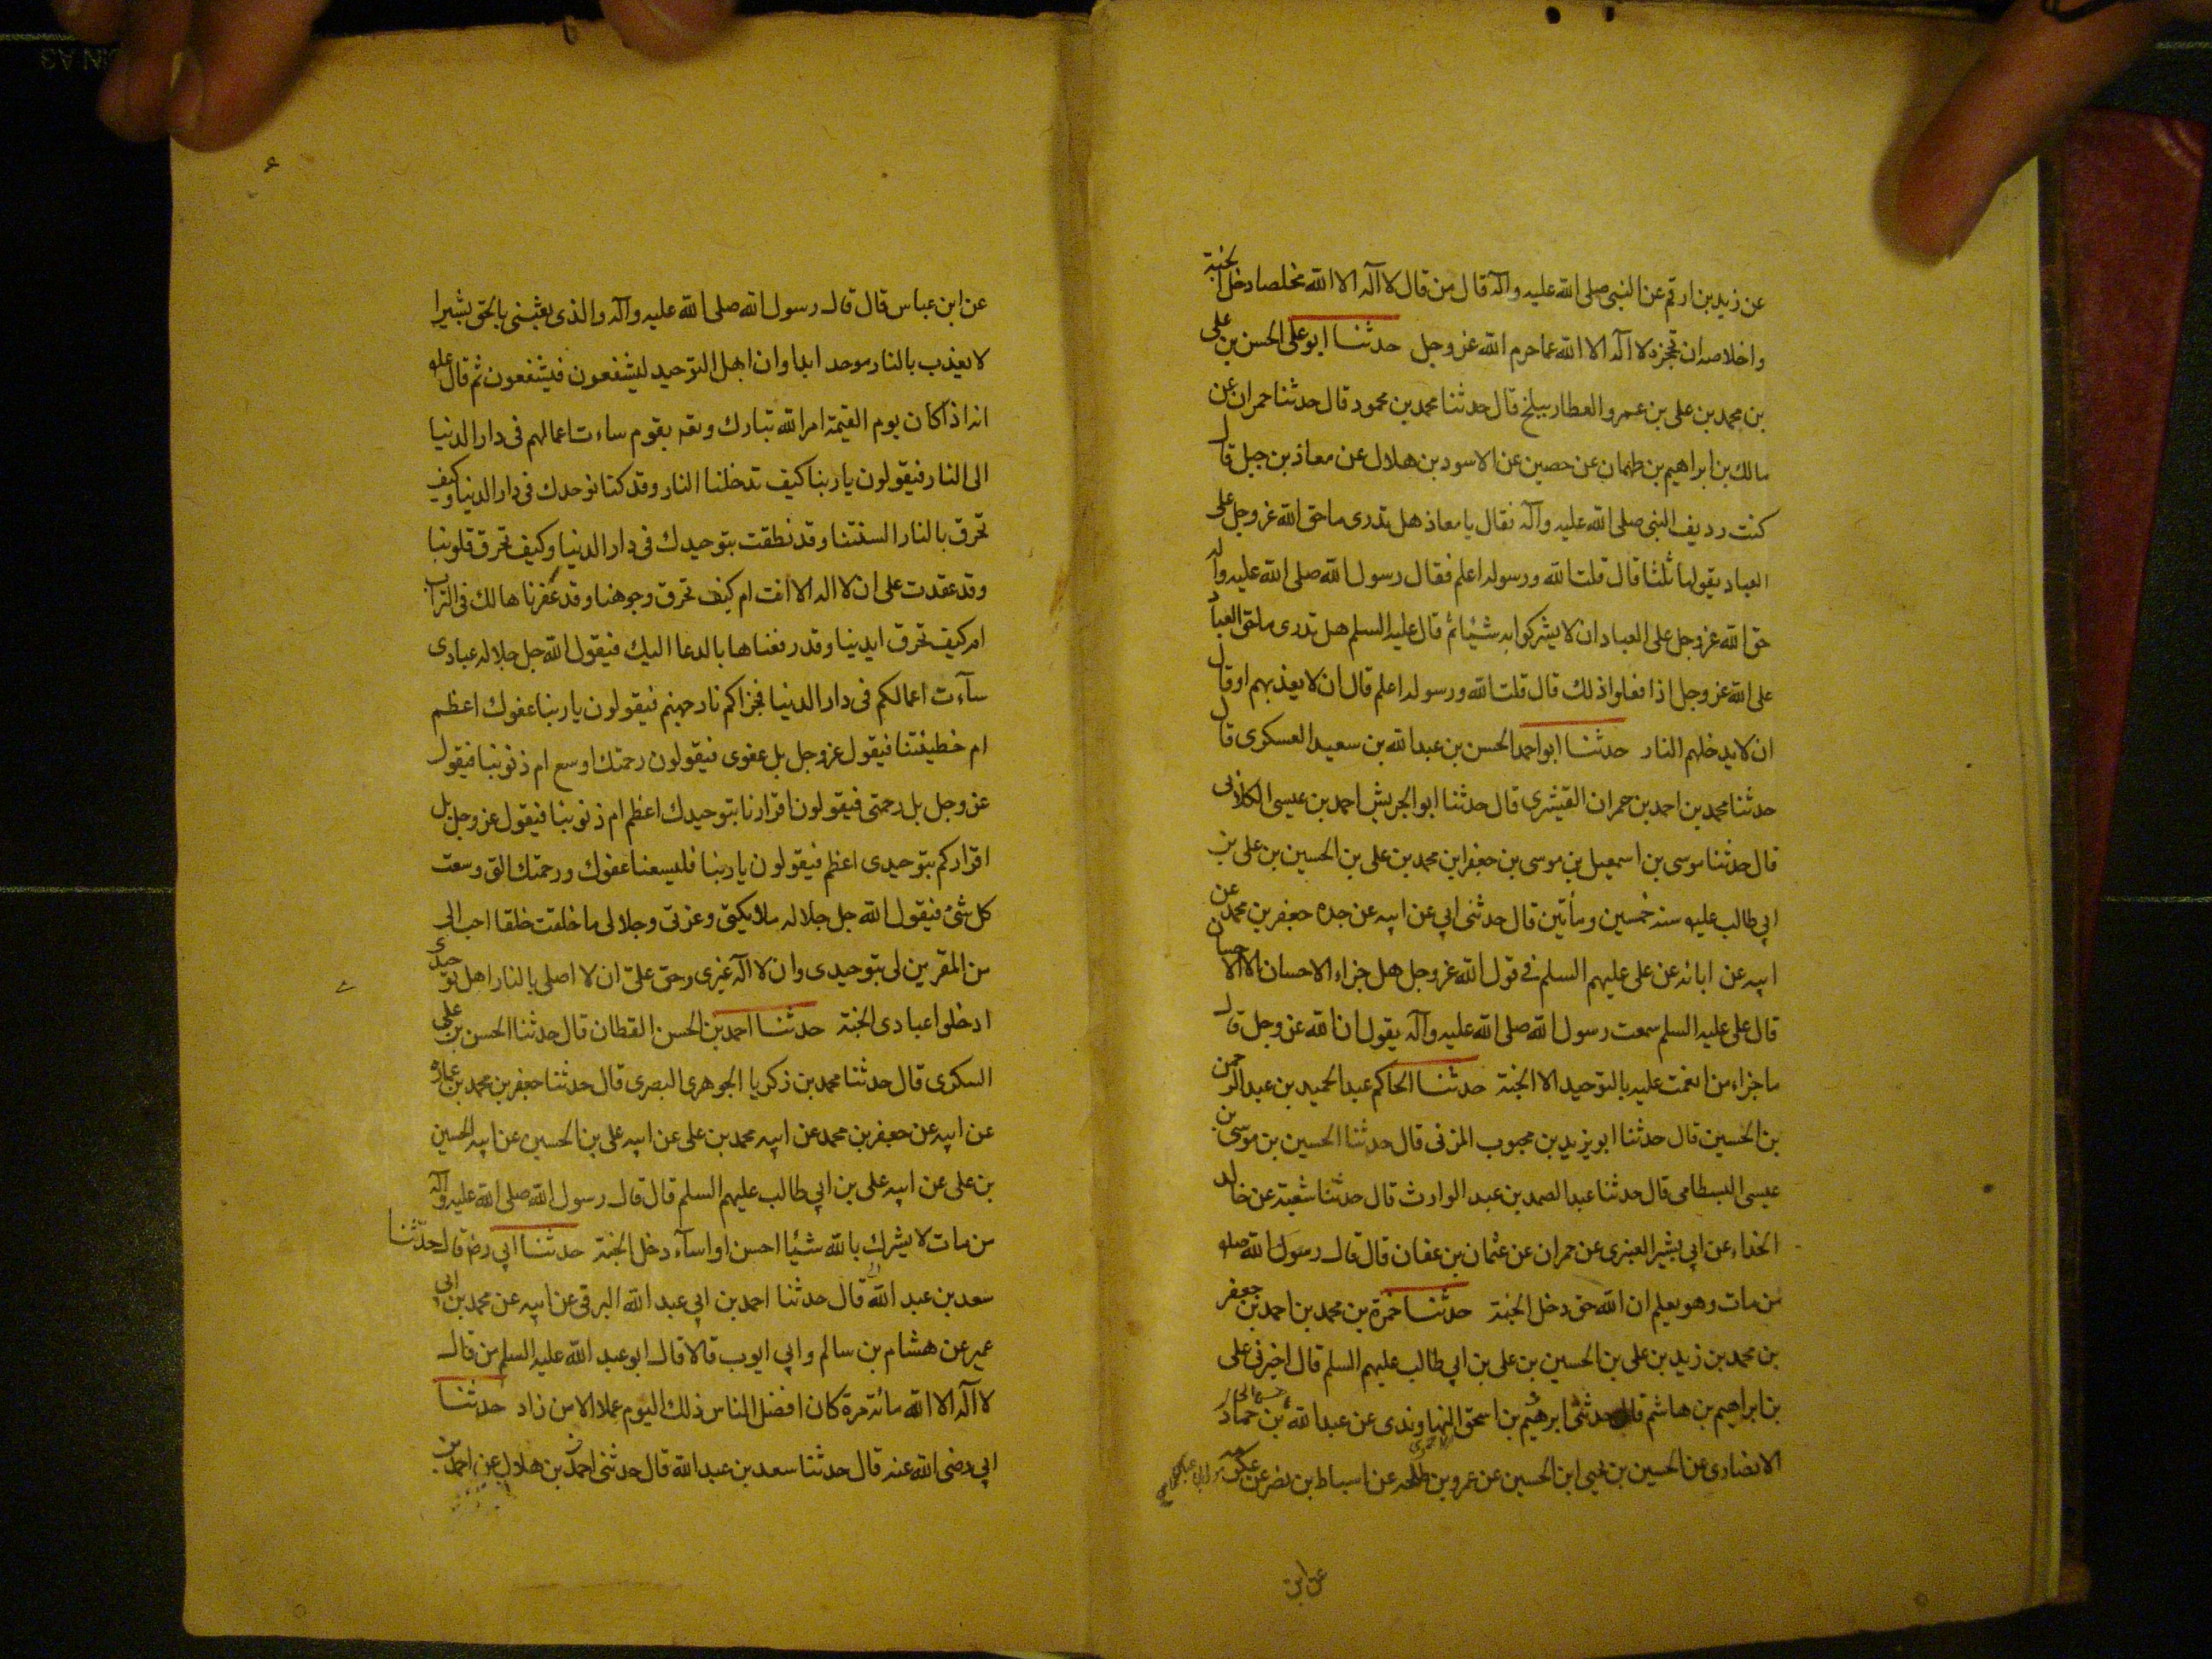 عن زيد بن ارقم عن النبى صلى الله عليه وآله قال من قال لا اله الا الله مخلصا دخل الجنة
واخلاصه ان تحجزه لا اله الا الله عما حرم الله عز وجل حدثنا ابو على الحسن بن على
بن محمد بن على بن عمرو العطار ببلخ قال حدثنا محمد بن محمود قال حدثنا حمران عن
مالك بن ابراهيم بن طهمان عن حصين عن الاسود بن هلال عن معاذ بن جبل قال
كنت رديف النبى صلى الله عليه وآله فقال يا معاذ هل تدرى ما حق الله عز وجل على
العباد يقولها ثلثا قال قلت الله ورسوله اعلم فقال رسول الله صلى الله عليه وآله
حق الله عز وجل على العباد ان لا يشركوا به شيئا ثم قال عليه السلم هل تدرى ما حق العباد
على الله عز وجل اذا فعلوا ذلك قال قلت الله ورسوله اعلم قال ان لا يعذبهم او قال
ان لا يدخلهم النار حدثنا ابو احمد الحسن بن عبد الله بن سعيد العسكرى قال
حدثنا محمد بن احمد بن حمران القشيرى قال حدثنا ابو الحريش احمد بن عيسى الكلابى
قال حدثنا موسى بن اسمعيل بن موسى بن جعفر ابن محمد بن على بن الحسين بن على بن
ابى طالب عليه سنه خمسين ومأتين قال حدثنى ابى عن ابيه عن جده جعفر بن محمد عن
ابيه عن ابائه عن على عليهم السلم فى قول الله عز وجل هل جزاء الاحسان الا الاحسان
قال على عليه السلم سمعت رسول الله صلى الله عليه وآله يقول ان الله عز وجل قال
ما جزاء من انعمت عليه بالتوحيد الا الجنة حدثنا الحاكم عبد الحميد بن عبد الرحمن
بن الحسين قال حدثنا ابو يزيد بن محبوب المزنى قال حدثنا الحسين بن موسى بن
عيسى البسطامى قال حدثنا عبد الصمد بن عبد الوارث قال حدثنا شعبة عن خالد
الحذاء عن ابى بشير العنبرى عن حمران عن عثمان بن عفان قال قال رسول الله صله
من مات وهو يعلم ان الله حق دخل الجنة حدثنا حمزة بن محمد بن احمد بن جعفر
بن محمد بن زيد بن على بن الحسين بن على بن ابى طالب عليهم السلم قال اخبرنى على
بن ابراهيم بن هاشم قال حدثنى ابرهيم بن اسحق النهاوندى عن عبد الله بن حماد
الانصارى عن الحسين بن يحيى ابن الحسين عن عمرو بن طلحه عن اسباط بن نصر عن عكرمه
عن ابن
عن ابن عباس قال قال رسول الله صلى الله عليه وآله والذى بعثنى بالحق بشيرا
لا يعذب بالنار موحدا ابدا وان اهل التوحيد ليشفعون فيشفعون ثم قال عليه
انه اذا كان يوم القيمة امر الله تبارك وتعه بقوم ساءت اعمالهم فى دار الدنيا
الى النار فيقولون يا ربنا كيف تدخلنا النار وقد كنا نوحدك فى دار الدنيا وكيف
تحرق بالنار السنتنا وقد نطقت بتوحيدك فى دار الدنيا وكيف تحرق قلوبنا
وقد عقدت على ان لا اله الا انت ام كيف تحرق وجوهنا وقد عفرناها لك فى التراب
ام كيف تحرق ايدينا وقد رفعناها بالدعا اليك فيقول الله جل جلاله عبادى
سآءت اعمالكم فى دار الدنيا فجزاكم نار جهنم فيقولون يا ربنا عفوك اعظم
ام خطيئتنا فيقول عز وجل بل عفوى فيقولون رحمتك اوسع ام ذنوبنا فيقول
عز وجل بل رحمتى فيقولون اقرارنا بتوحيدك اعظم ام ذنوبنا فيقول عز وجل بل
اقراركم بتوحيدى اعظم فيقولون يا ربنا فليسعنا عفوك ورحمتك التى وسعت
كل شئ فيقول الله جل جلاله ملائكتى وعزتى وجلالى ما خلقت خلقا احب الى
من المقرين لى بتوحيدى وان لا اله غيرى وحق على ان لا اصلى بالنار اهل توحيدى
ادخلوا عبادى الجنة حدثنا احمد بن الحسن القطان قال حدثنا الحسن بن على
السكرى قال حدثنا محمد بن زكريا الجوهرى البصرى قال حدثنا جعفر بن محمد بن عماره
عن ابيه عن جعفر بن محمد عن ابيه محمد بن على عن ابيه على بن الحسين عن ابيه الحسين
بن على عن ابيه على بن ابى طالب عليهم السلم قال قال رسول الله صلى الله عليه وآله
من مات لا يشرك بالله شيئا احسن او اسآء دخل الجنة حدثنا ابى رض قال حدثنا
سعد بن عبد الله قال حدثنا احمد بن ابى عبد الله البرقى عن ابيه عن محمد بن ابى
عمير عن هشام بن سالم وابى ايوب قالا قال ابو عبد الله عليه السلم من قال
لا اله الا الله مائة مرة كان افضل الناس ذلك اليوم عملا الا من زاد حدثنا
ابى رضى الله عنه قال حدثنا سعد بن عبد الله قال حدثنى احمد بن هلال عن احمد بن